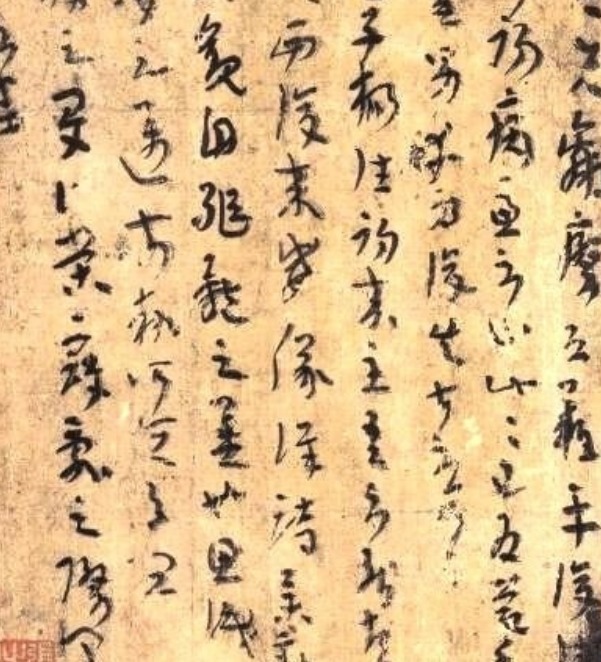 先羸瘵恐難平復
初病慮不止此此已為慶
唯男幸為復失前憂耳
子楊往初来主吾不能盡
西復来威儀詳跱舉動
觀自軀體之美也思識
量之邁前執所恒有宜
之夏伯榮寇亂之際聞